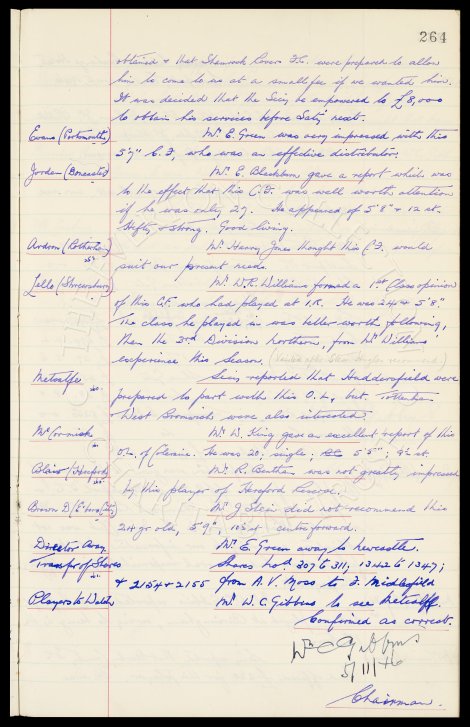 264
obtained & that Shamrock Rovers F.C. were prepared to allow
him to come to us at a small fee if we wanted him.
It was decided that the Secy be empowered to £8,000
to obtain his services before Saty next.
Evans (Portsmouth) Mr. E. Green was very impressed with this
5'7" C.F, who was an effective distributor.
Jordan (Doncaster) Mr. E. Blackburn gave a report which was
to the effect that this C.F. was well worth attention
if he was only 27. He appeared of 5'8" & 12 st.
Hefty & strong. Good living.
Ardron (Rotherham) Mr. Harry Jones thought this C.F. would
suit our present needs.
Lello (Shrewsbury) Mr. W.R. Williams formed a 1st Class opinion
of this C.F. who had played at I.R. He was 24 & 5'8"
The class he played in was better worth following,
than the 3rd Division Northern, from Mr Williams'
experience this Season.
Metcalfe Secy reported that Huddersfield were
prepared to part with this O.L, but Tottenham
& West Bromwich were also interested
McCormick Mr. W. King gave an excellent report of this
O.L. of Coleraine. He was 20; single; 5'5"; 9½ st.
Blair (Hereford) Mr. R. Bentham was not greatly impressed
by this player of Hereford Reserve.
Brown D (E. Fife) Mr. J. Stein did not recommend this
24 yr old, 5'9", 10½ st centre forward.
Director Away Mr. E. Green away to Newcastle.
Transfr of Shares Shares Nos. 307 to 311; 1342 to 1347;
& 2154 & 2155 from A. V. Moss to J. Middlefild
Players to Watch Mr. W. C. Gibbins to see Metcalfe.
Confirmed as correct.
Wm C Gibbins
5/11/46
Chairman.